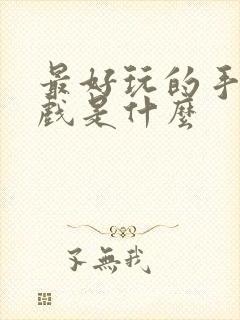 最好玩的手
戲是什麼
不無我